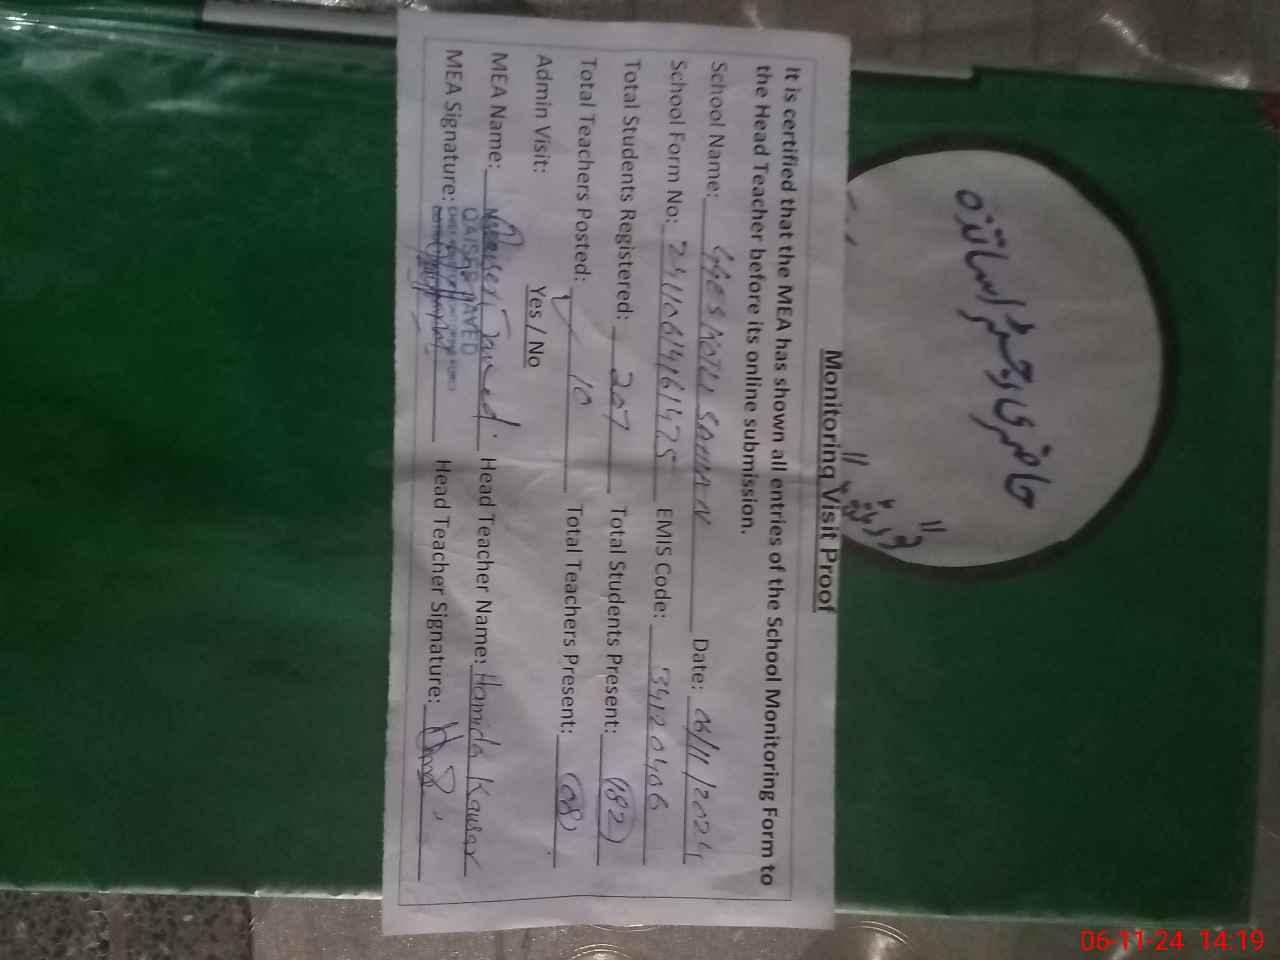 حاضری رجسٹر اساتذہ
Monitoring Visit Proof
It is certified that the MEA has shown all entries of the School Monitoring Form to
the Head Teacher before its online submission.
School Name: GGES KOTLI Date: 06/11/2024
School Form No: EMIS Code: 34120406
Total Students Registered: 207 Total Students Present: (182)
Total Teachers Posted: 10 Total Teachers Present: (08)
Admin Visit: Yes / No
MEA Name: Qaiser Javed. Head Teacher Name: Hamida Kausar
QAISAR JAVED
MEA Signature: Head Teacher Signature:
06-11-24 14:19